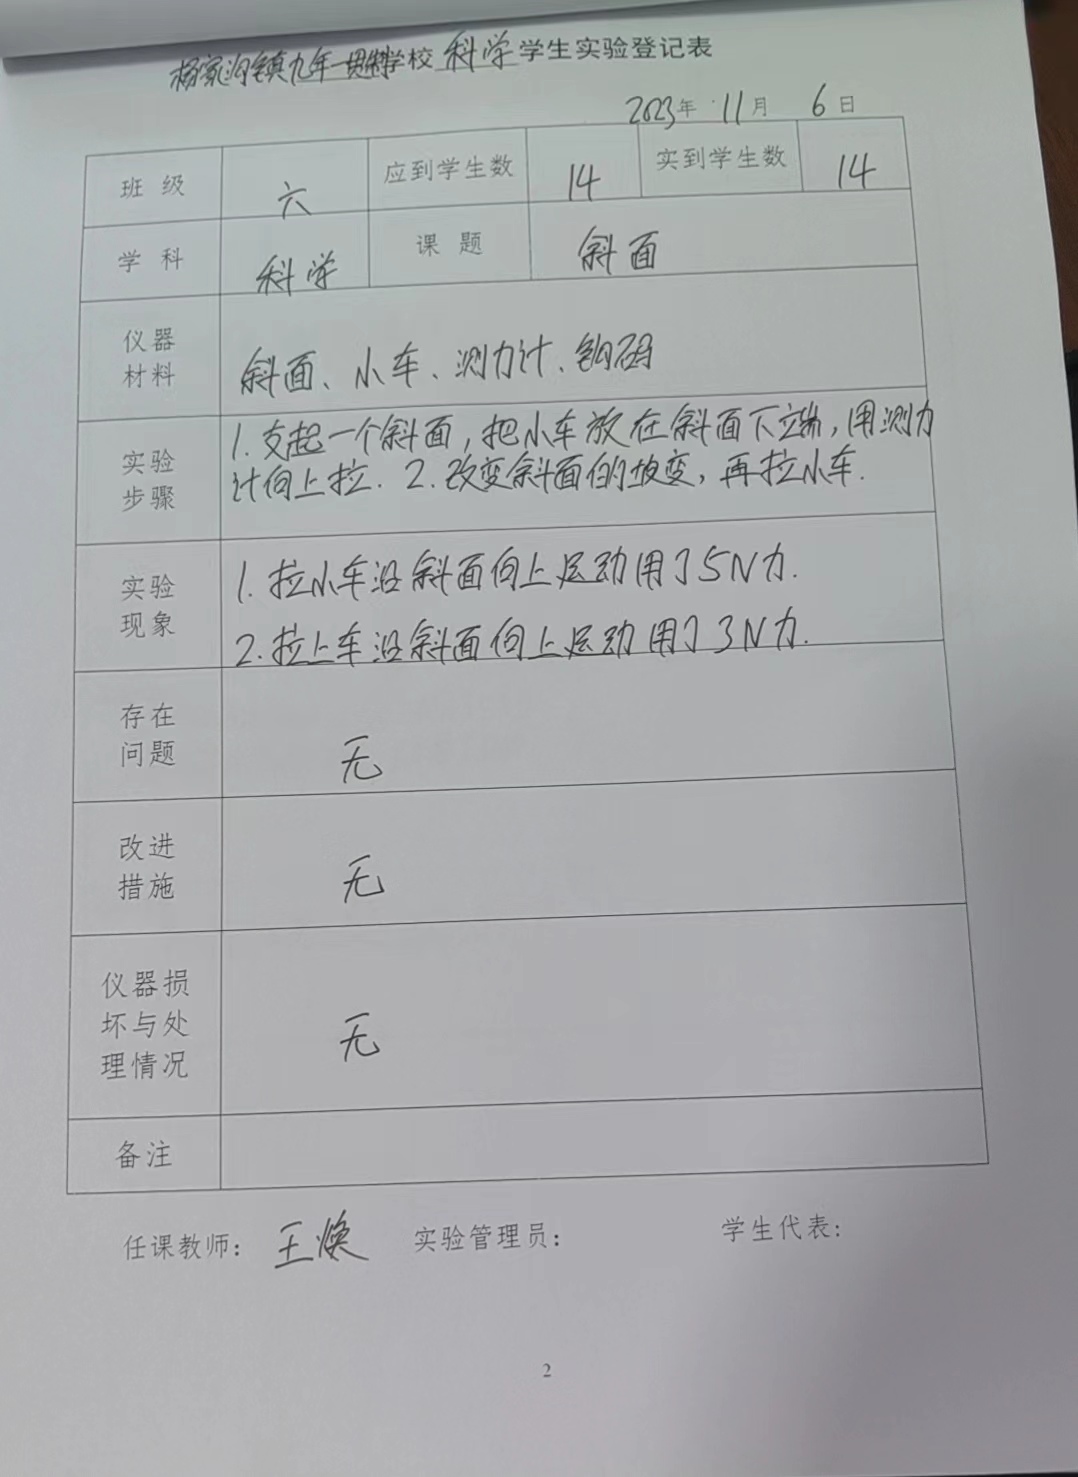 杨家沟镇九年一贯制学校科学学生实验登记表
2023年 11月 6日
班级 六 应到学生数 14 实到学生数 14
学科 科学 课题 斜面
仪器
材料
斜面、小车、测力计、钩码
实验
步骤
1.支起一个斜面,把小车放在斜面下端,用测力
计向上拉.2.改变斜面的坡变,再拉小车.
实验
现象
1.拉小车沿斜面向上运动用了5N力.
2.拉上车沿斜面向上运动用了3N力.
存在
问题
无
改进
措施
无
仪器损
坏与处
理情况
无
备注
任课教师: 王焕 实验管理员: 学生代表:
2